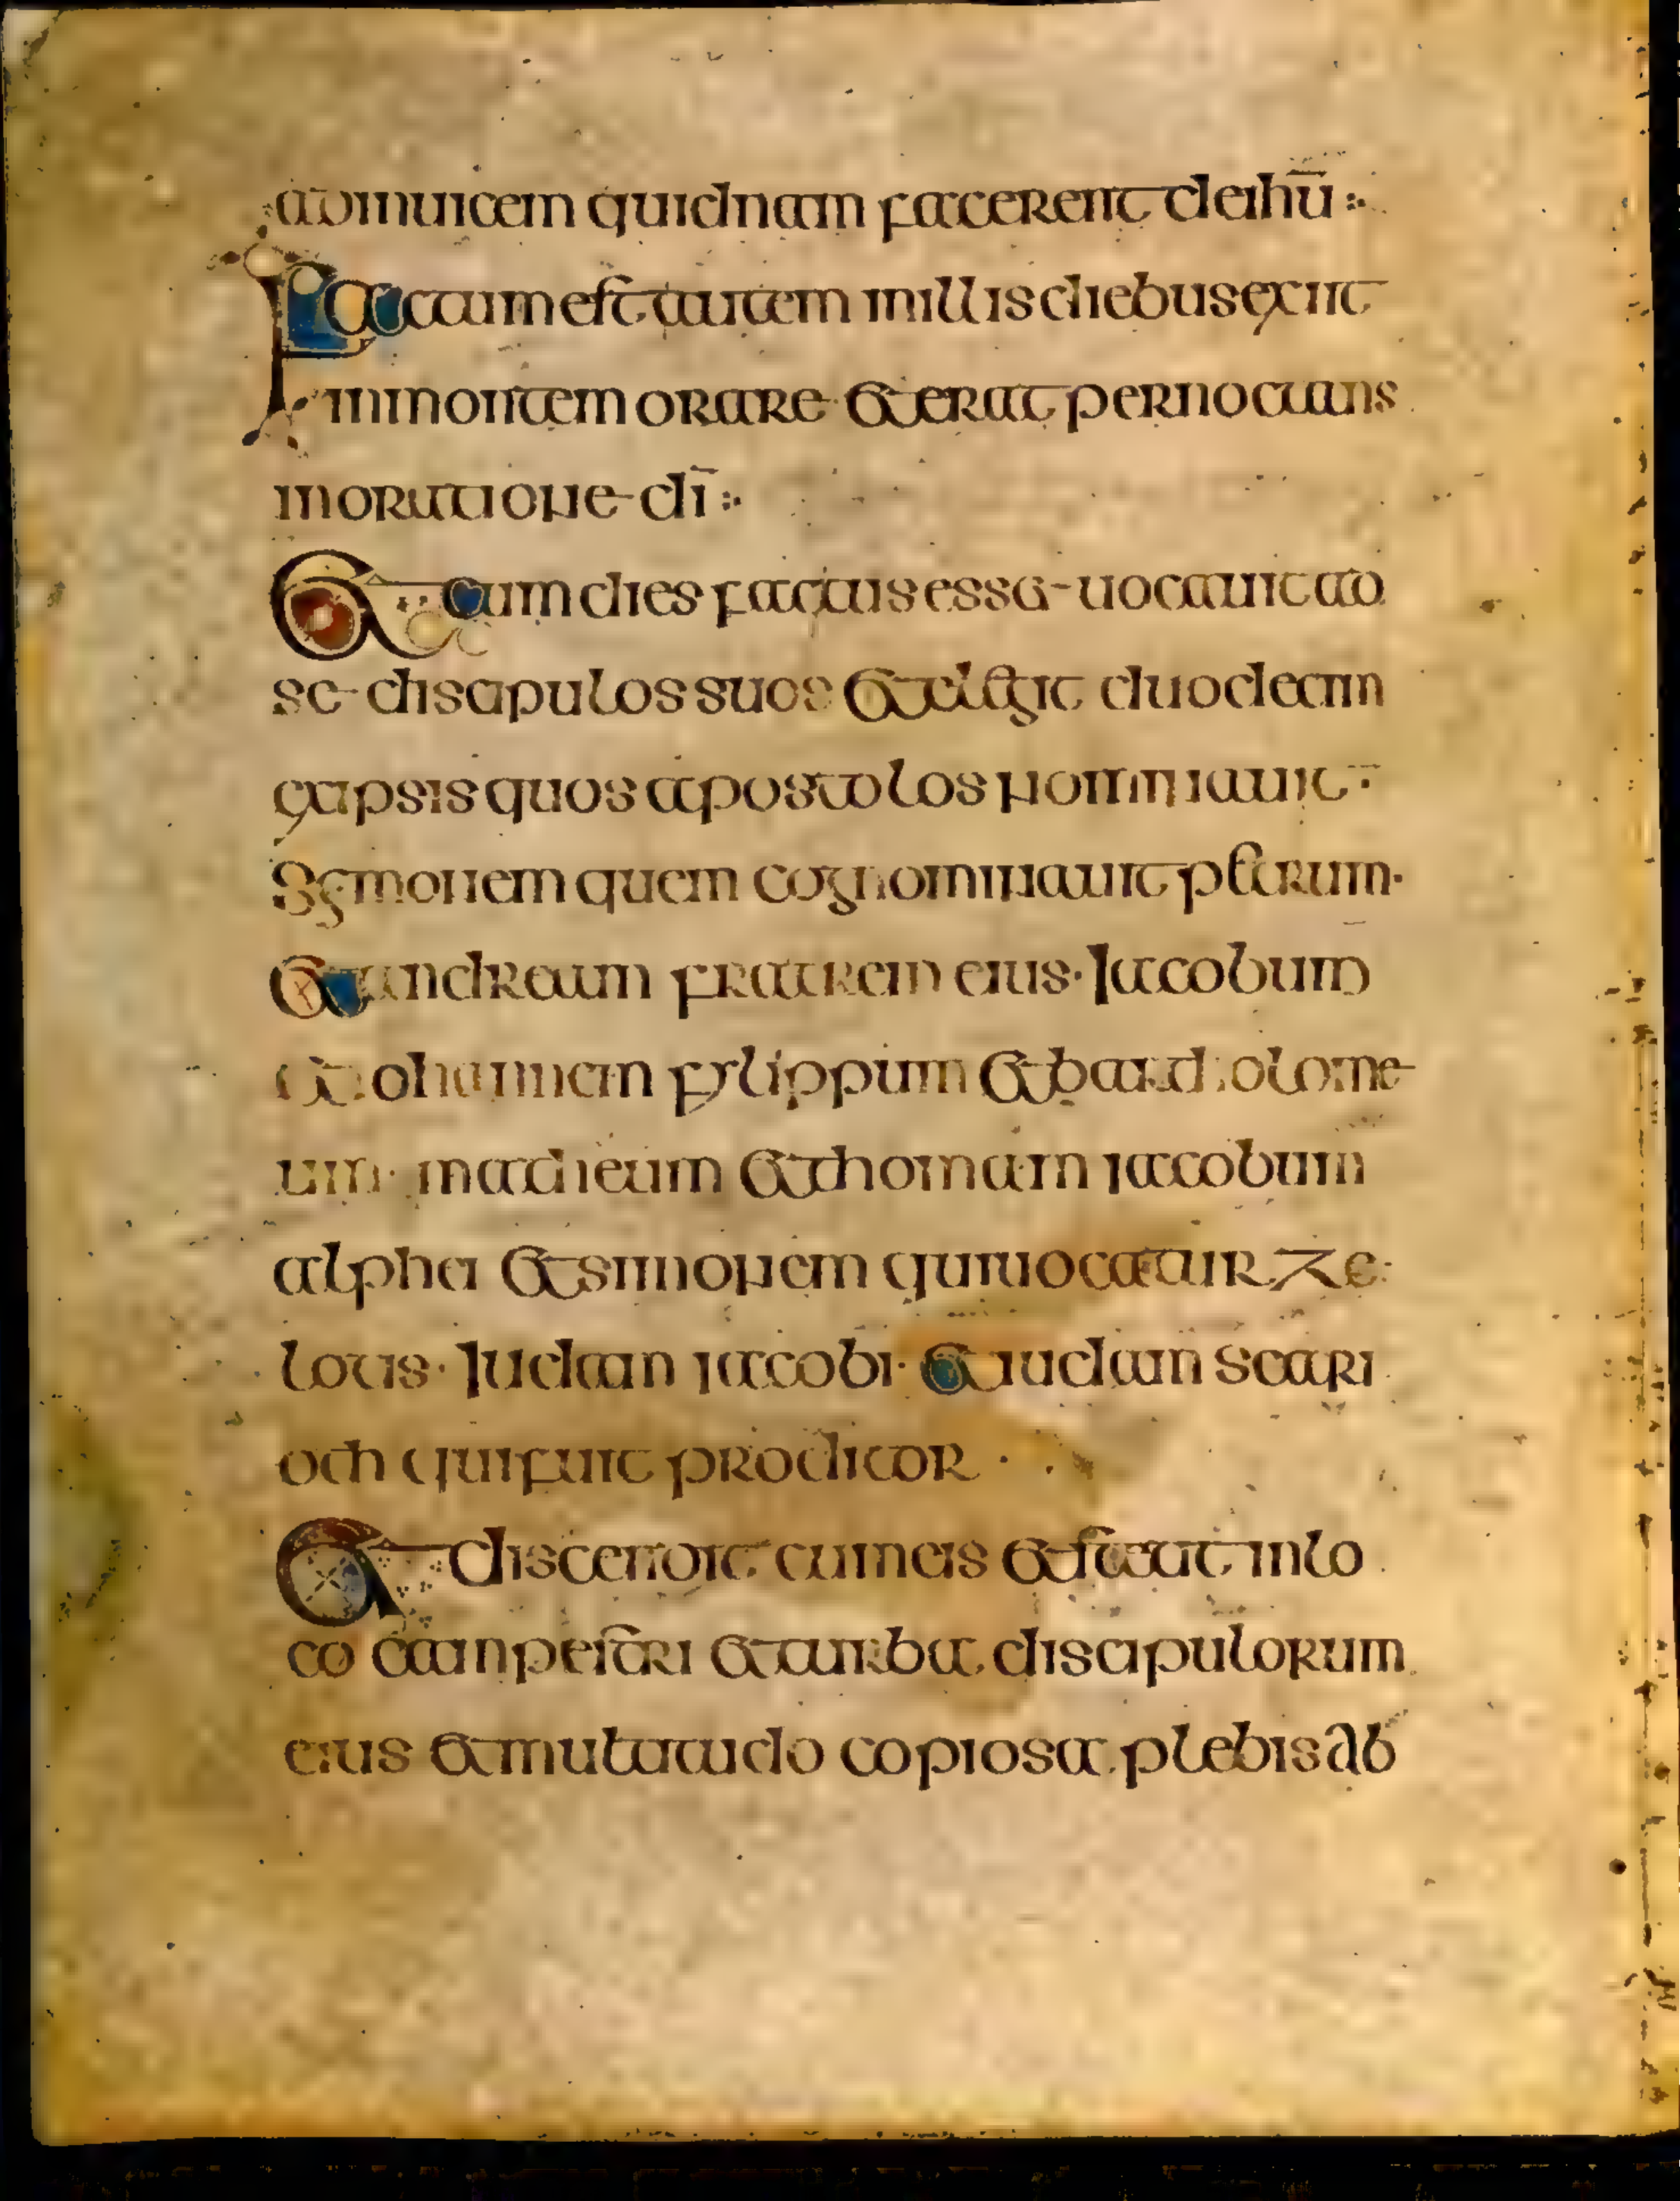 adinuicem quidnam facerent deihū
Factum est autem inillis diebus exiit
inmontem orare et erat pernoctans
inoratione dī
Et cum dies factus esset uocauit ad
se discipulos suos et elegit duodecim
exipsis quos apostolos nominauit
Symonem quem cognominauit petrum
et andream fratrem eius Iacobum
et iohannem fylippum et bartholome
um matheum et thomam iacobum
alphei et simonem quiuocatur ze
lotis Iudam iacobi et iudam scari
oth quifuit proditor
Et discendit cumeis et stetit inlo
co campestri et turba discipulorum
eius et multitudo copiosa plebis ab